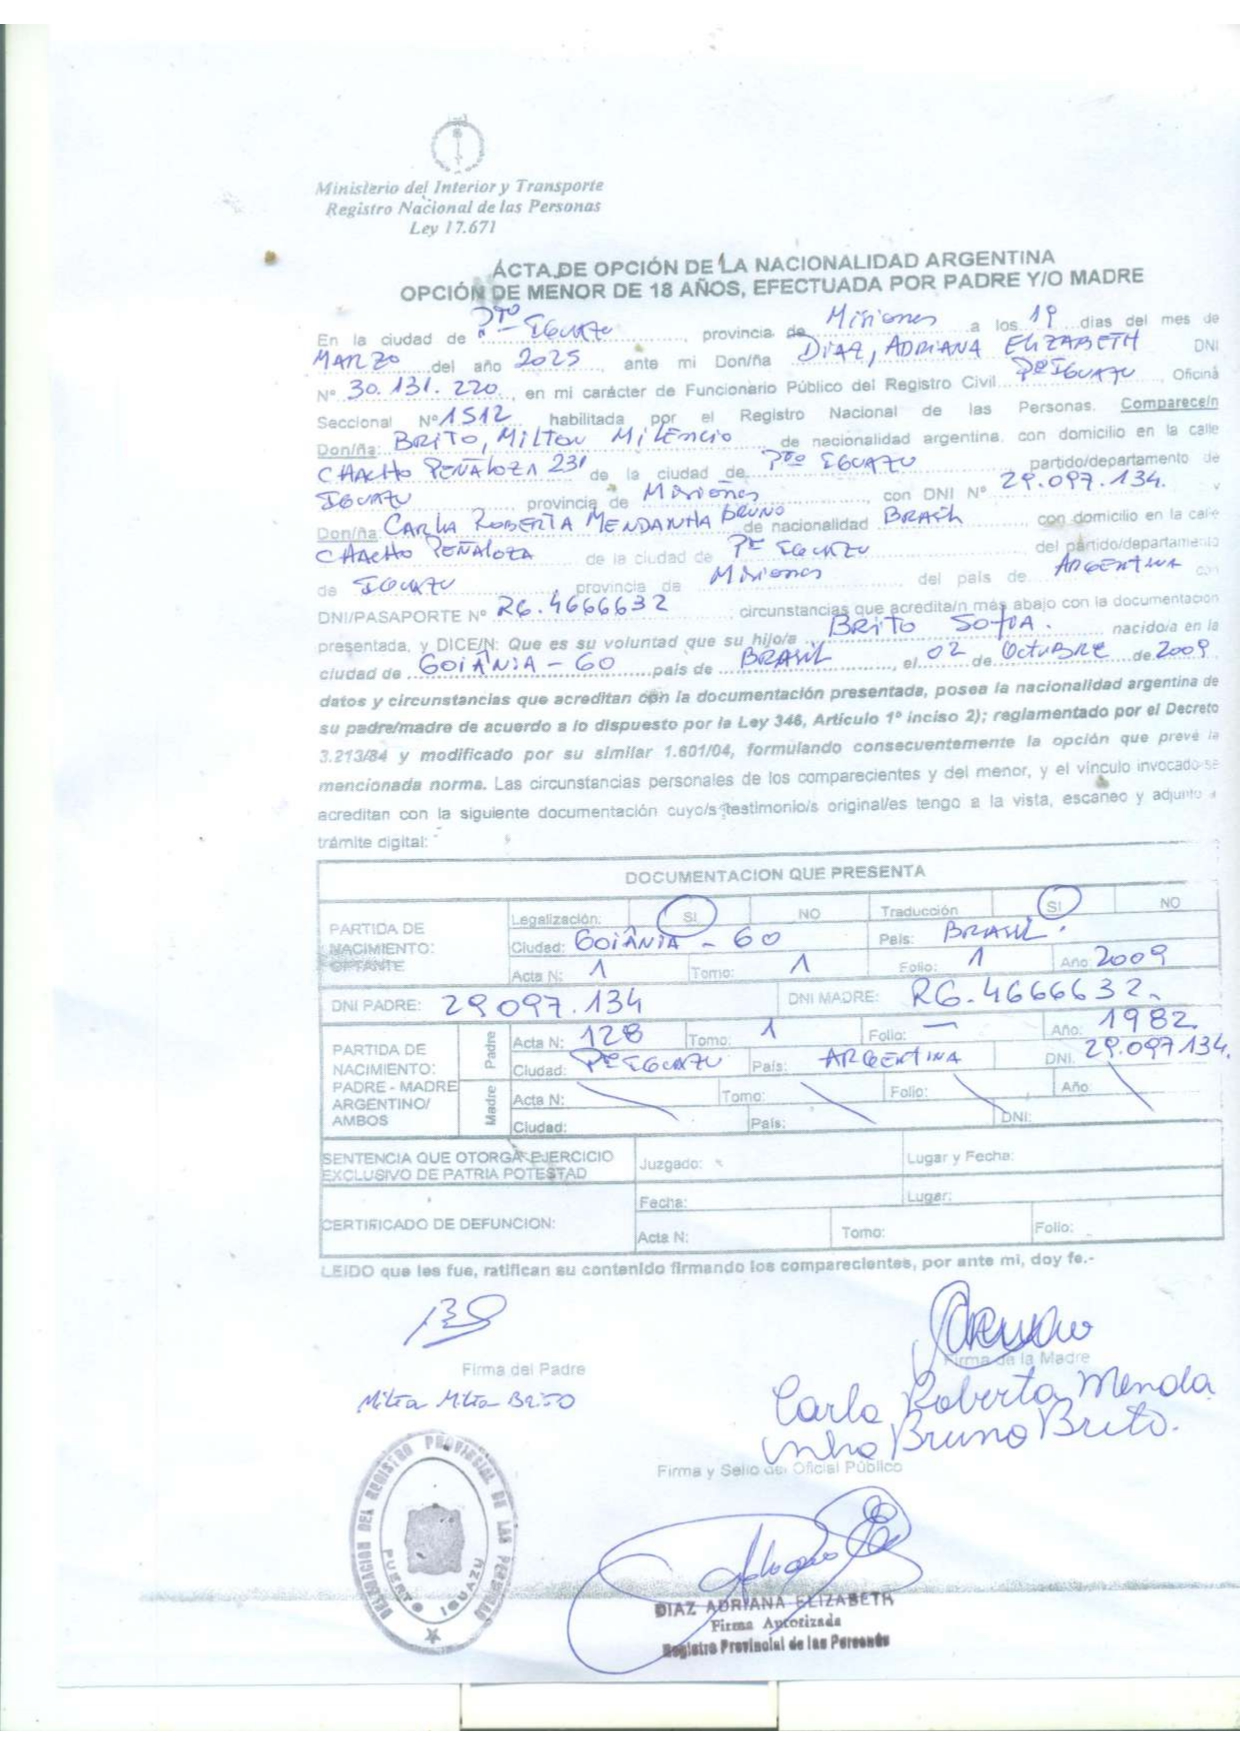 Ministerio del Interior y Transporte
Registro Nacional de las Personas
Ley 17.671
ACTA DE OPCIÓN DE LA NACIONALIDAD ARGENTINA
OPCIÓN DE MENOR DE 18 AÑOS, EFECTUADA POR PADRE Y/O MADRE
En la ciudad de Pto Iguazu, provincia de Misiones a los 19 dias del mes de
MARZO del año 2025, ante mi Don/ña DIAZ, ADRIANA ELIZABETH DNI
Nº 30.131.220, en mi carácter de Funcionario Público del Registro Civil Pto IGUAZU, Oficina
Seccional Nº 1512 habilitada por el Registro Nacional de las Personas. Comparece/n
Don/ña: BRITO, MILTON MILENCIO de nacionalidad argentina, con domicilio en la calle
CHACHO PEÑALOZA 231 de la ciudad de Pto IGUAZU partido/departamento de
IGUAZU provincia de Misiones, con DNI Nº 29.097.134. y
Don/ña CARLA ROBERTA MENDANHA BRUNO de nacionalidad BRASIL con domicilio en la calle
CHACHO PEÑALOZA de la ciudad de Pto IGUAZU del partido/departamento
de IGUAZU provincia de Misiones del país de ARGENTINA con
DNI/PASAPORTE Nº RG.4666632 circunstancias que acredita/n más abajo con la documentación
presentada, y DICE/N: Que es su voluntad que su hijo/a BRITO SOFIA. nacido/a en la
ciudad de GOIÂNIA - GO país de BRASIL, el 02 de Octubre de 2009
datos y circunstancias que acreditan con la documentación presentada, posea la nacionalidad argentina de
su padre/madre de acuerdo a lo dispuesto por la Ley 346, Artículo 1º inciso 2); reglamentado por el Decreto
3.213/84 y modificado por su similar 1.601/04, formulando consecuentemente la opción que prevé la
mencionada norma. Las circunstancias personales de los comparecientes y del menor, y el vínculo invocado se
acreditan con la siguiente documentación cuyo/s testimonio/s original/es tengo a la vista, escaneo y adjunto a
trámite digital:
DOCUMENTACION QUE PRESENTA
PARTIDA DE NACIMIENTO: OPTANTE
Legalización: SI NO Traducción SI NO
Ciudad: GOIÂNIA - GO País: BRASIL.
Acta N: 1 Tomo: 1 Folio: 1 Año 2009
DNI PADRE: 29.097.134 DNI MADRE: RG.4666632.
PARTIDA DE NACIMIENTO: PADRE - MADRE ARGENTINO/ AMBOS
Padre Acta N: 128 Tomo: 1 Folio: — Año: 1982
Ciudad: Pto IGUAZU País: ARGENTINA DNI. 29.097.134.
Madre Acta N: Tomo: Folio: Año
Ciudad: País: DNI:
SENTENCIA QUE OTORGA EJERCICIO EXCLUSIVO DE PATRIA POTESTAD Juzgado: Lugar y Fecha:
CERTIFICADO DE DEFUNCION: Fecha: Lugar:
Acta N: Tomo: Folio:
LEIDO que les fue, ratifican su contenido firmando los comparecientes, por ante mi, doy fe.-
Firma del Padre
Firma de la Madre
Brito
Carla Roberta Menda
nha Bruno Brito.
Firma y Sello del Oficial Público
DELEGACION DEL REGISTRO PROVINCIAL DE LAS PERSONAS
PUERTO IGUAZU
DIAZ ADRIANA ELIZABETH
Firma Autorizada
Registro Provincial de las Personas